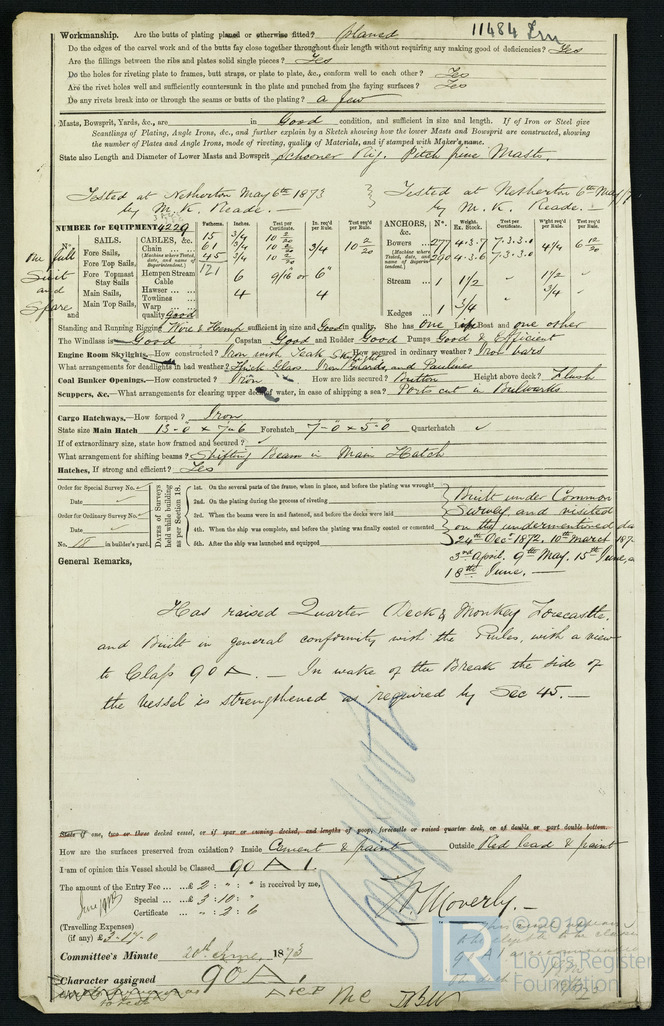 11484 Irn
Workmanship. Are the butts of plating planed or otherwise fitted? planed
Do the edges of the carvel work and of the butts fay close together throughout their length without requiring any making good of deficiencies? Yes
Are the fillings between the ribs and plates solid single pieces? Yes
Do the holes for riveting plate to frames, butt straps, or plate to plate, &c., conform well to each other? Yes
Are the rivet holes well and sufficiently countersunk in the plate and punched from the faying surfaces? Yes
Do any rivets break into or through the seams or butts of the plating? a few
Masts, Bowsprit, Yards, &c., are in Good condition, and sufficient in size and length. If of Iron or Steel give
Scantlings of Plating, Angle Irons, &c., and further explain by a Sketch showing how the lower Masts and Bowsprit are constructed, showing
the number of Plates and Angle Irons, mode of riveting, quality of Materials, and if stamped with Maker's name.
State also Length and Diameter of Lower Masts and Bowsprit Schooner Rig. Pitch pine Masts.
Tested at Netherton May 6th 1873 Tested at Netherton 6th May
by M. K. Reade. by M. K. Reade.
NUMBER for EQUIPMENT 4229 Fathoms. Inches. Test per Certificate. In. req'd per Rule. Test req'd per Rule. ANCHORS, &c. Nº. Weight. Ex. Stock. Test per Certificate. W'ght req'd per Rule. Test req'd per Rule.
SAILS. CABLES, &c.
Fore Sails, Chain
Fore Top Sails, (Machine where Tested, date, and name of Superintendent.)
Fore Topmast Stay Sails Hempen Stream Cable
Main Sails, Hawser
Main Top Sails, Towlines
and Warp
quality good
One full Suit and Spare
15 3/4 10 2/20
61 3/4 10 2/20 3/4 10 2/20
45 3/4 10 2/20
121
6 9/16 or 6"
4 4
Bowers 277 4.3.7 7.3.3.0 4 1/4 6 12/20
(Machine where Tested, date, and name of Superintendent.) 290 4.3.6 7.3.3.0
Stream 1 1 1/2 " 1 1/2 "
Kedges 1 3/4 " 3/4 "
Standing and Running Rigging Wire & Hemp sufficient in size and Good in quality. She has one Life Boat and one other
The Windlass is Good Capstan Good and Rudder Good Pumps Good & Efficient
Engine Room Skylights.—How constructed? Iron with Teak Skylights How secured in ordinary weather? Iron bars
What arrangements for deadlights in bad weather? Thick Glass Iron Guards, and Paulines
Coal Bunker Openings.—How constructed? Iron How are lids secured? Button Height above deck? Flush
Scuppers, &c.—What arrangements for clearing upper deck of water, in case of shipping a sea? Ports cut in Bulwarks
Cargo Hatchways.—How formed? Iron
State size Main Hatch 13-0 x 7-6 Forehatch 7-0 x 5-0 Quarterhatch ✓
If of extraordinary size, state how framed and secured? ✓
What arrangement for shifting beams? Shifting Beam in Main Hatch
Hatches, If strong and efficient? Yes
Order for Special Survey No. ✓
Date ✓
Order for Ordinary Survey No. ✓
Date ✓
No. 18 in builder's yard.
DATES of Surveys held while building as per Section 18.
1st. On the several parts of the frame, when in place, and before the plating was wrought
2nd. On the plating during the process of riveting
3rd. When the beams were in and fastened, and before the decks were laid
4th. When the ship was complete, and before the plating was finally coated or cemented
5th. After the ship was launched and equipped
Built under Common
Survey and visited
on the undermentioned da
24th Decr 1872. 10th March 187
3rd April. 9th May. 15th June, a
18th June.
General Remarks,
Has raised Quarter Deck & Monkey Forecastle,
and Built in general conformity with the Rules, with a view
to Class 90 A. — In wake of the Break the side of
the Vessel is strengthened as required by Sec 45. —
State if one, two or three decked vessel, or if spar or awning decked, and lengths of poop, forecastle or raised quarter deck, or if double or part double bottom.
How are the surfaces preserved from oxidation? Inside Cement & paint Outside Red lead & paint
I am of opinion this Vessel should be Classed 90 A 1.
The amount of the Entry Fee ... £ 2 : " : " is received by me,
Special ... £ 3 : 10 : "
Certificate ... " : 2 : 6
(Travelling Expenses)
(if any) £ 3-17-0
Wm Moverly.
Committee's Minute 20th June, 1873
Character assigned 90 A 1.
A & C P MC
© 2019
LR
Lloyd's Register
Foundation